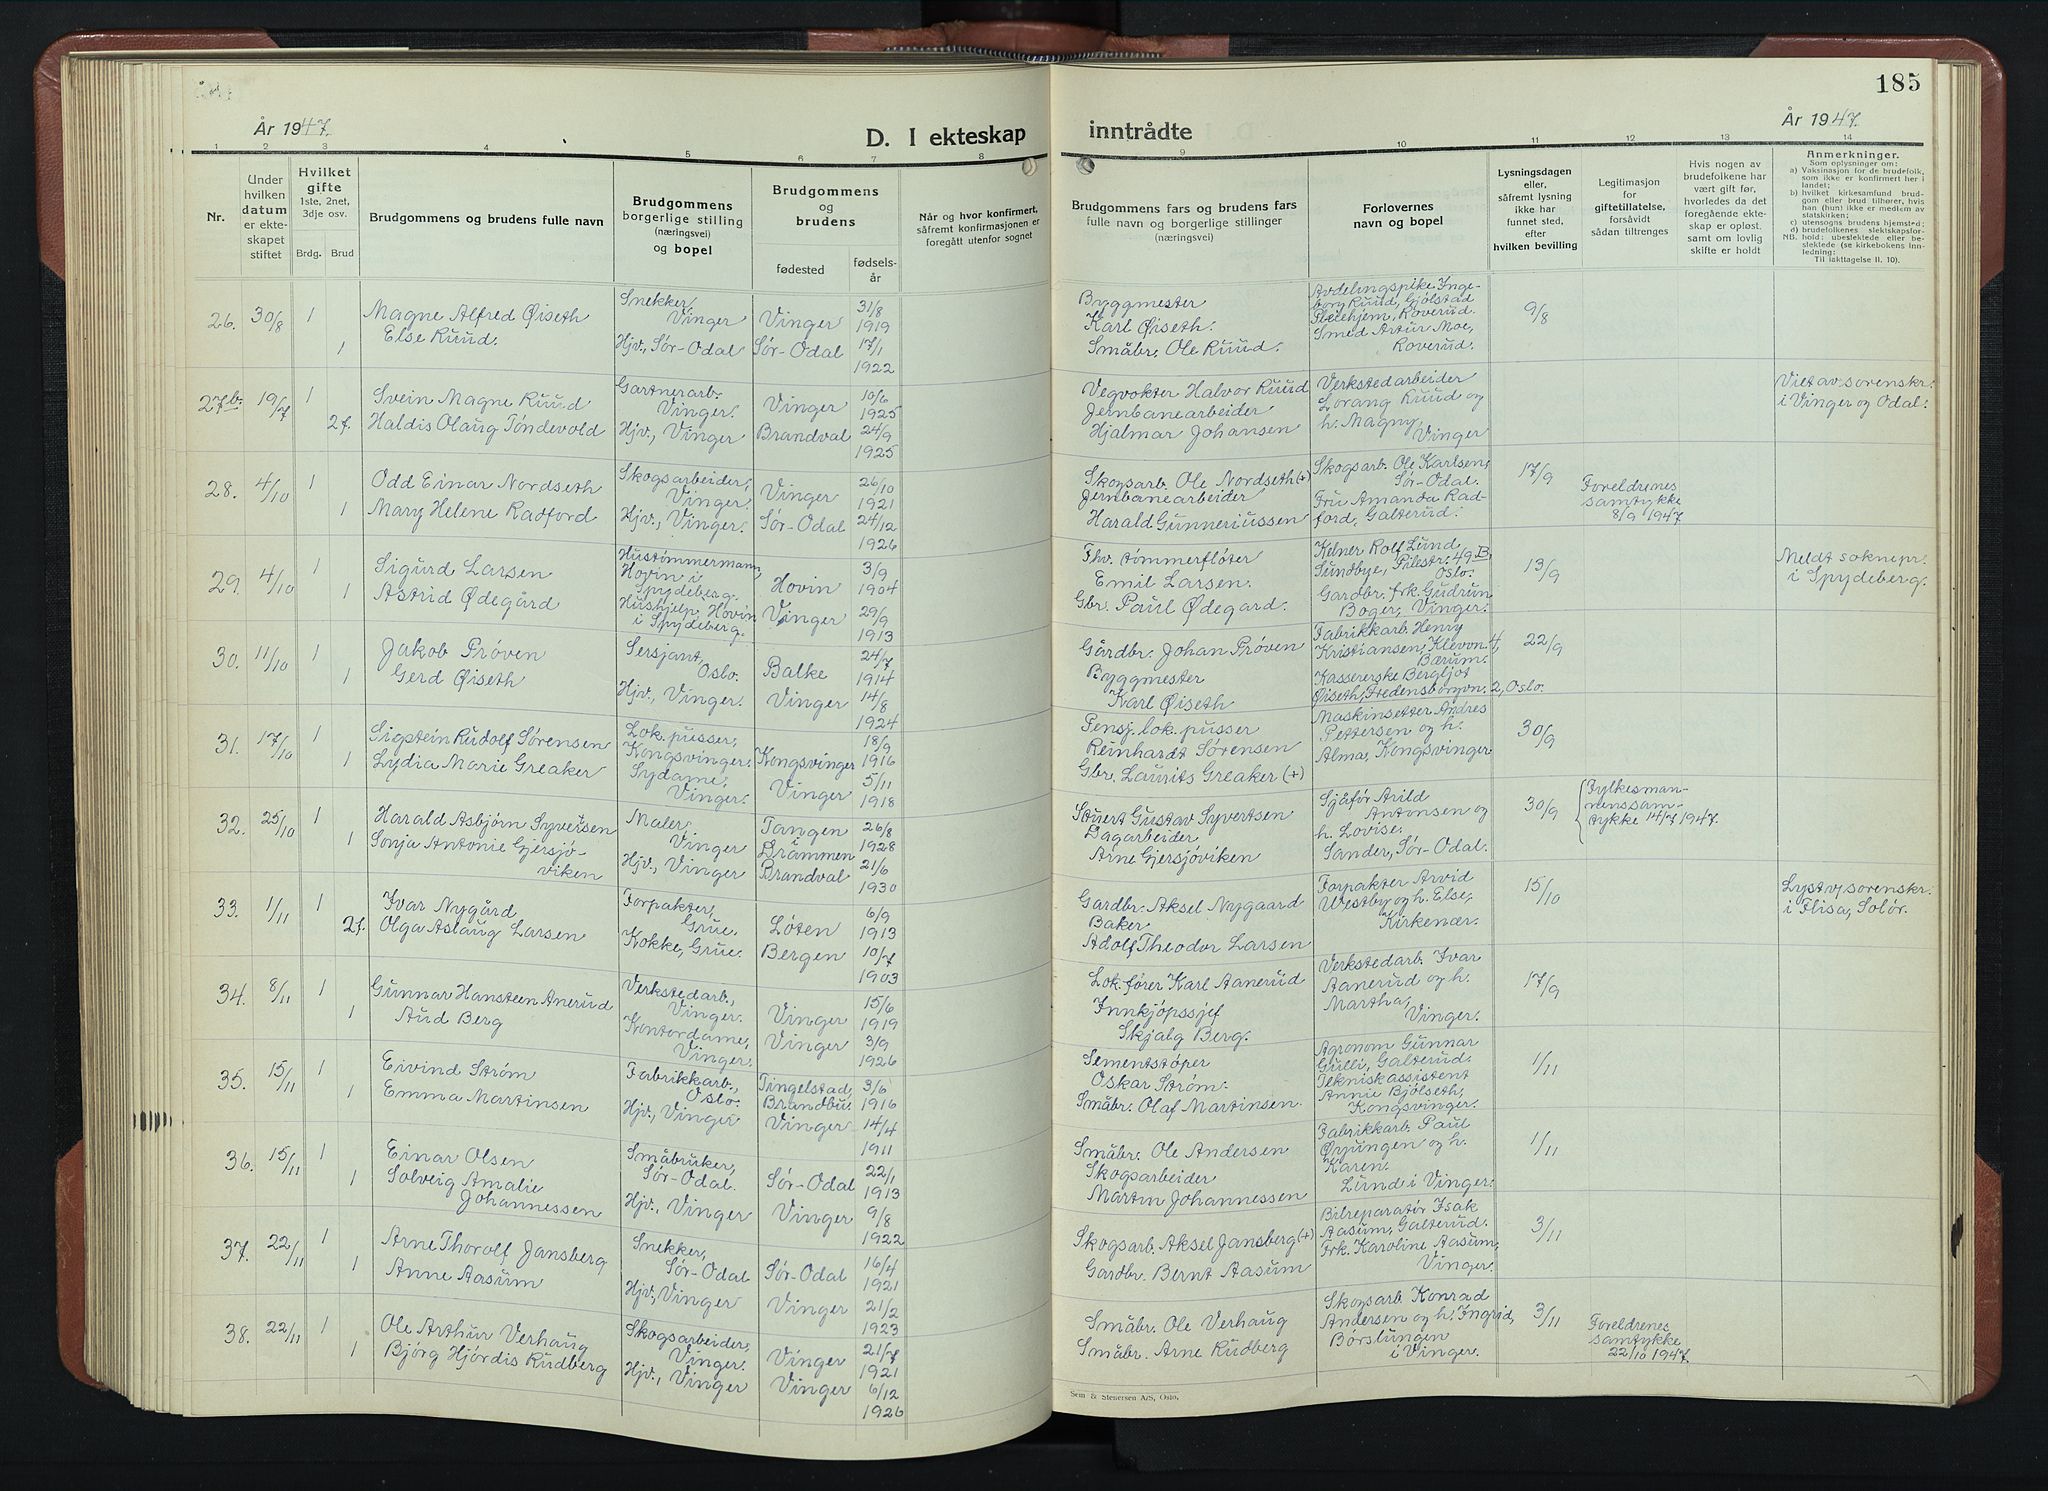 År 1947.
D. I ekteskap
1 2 3 4 5 6 7 8
Nr.
Under hvilken datum er ekteskapet stiftet
Hvilket gifte 1ste, 2net, 3dje osv.
Brdg. Brud
Brudgommens og brudens fulle navn
Brudgommens borgerlige stilling (næringsvei) og bopel
Brudgommens og brudens
fødested
fødselsår
Når og hvor konfirmert, såfremt konfirmasjonen er foregått utenfor sognet
26. 30/8 1 Magne Alfred Øiseth Snekker, Vinger Vinger 31/8 1919
1 Else Ruud. Hjv., Sør-Odal Sør-Odal 17/1 1922
27b. 19/7 1 Svein Magne Ruud Gartnerarb. Vinger. Vinger 10/6 1925
2f. Haldis Olaug Tøndevold Hjv., Vinger Brandval 24/9 1925
28. 4/10 1 Odd Einar Nordseth Skogsarbeider, Vinger. Vinger 26/10 1921
1 Mary Helene Radford Hjv., Vinger. Sør-Odal 24/12 1926
29. 4/10 1 Sigurd Larsen Hustømmermann, Hovin i Spydeberg. Hovin 3/9 1904
1 Astrid Ødegård Hushjelp, Hovin i Spydeberg. Vinger 29/9 1913
30. 11/10 1 Jakob Prøven Sersjant, Oslo. Balke 24/7 1914
1 Gerd Øiseth Hjv., Vinger. Vinger 14/8 1924
31. 17/10 1 Sigstein Rudolf Sørensen Lok.pusser, Kongsvinger. Kongsvinger 18/9 1916
1 Lydia Marie Greaker Sydame, Vinger. Vinger 5/11 1918
32. 25/10 1 Harald Asbjørn Syvertsen Maler, Vinger Tangen Drammen 26/8 1928
1 Sonja Antonie Gjersjøviken Hjv., Vinger Brandval 21/6 1930
33. 1/11 1 Ivar Nygård Forpakter, Grue. Løten 6/9 1913
2f. Olga Aslaug Larsen Kokke, Grue. Bergen 10/7 1903
34. 8/11 1 Gunnar Hansteen Anerud Verkstedarb., Vinger. Vinger 15/6 1919
1 Aud Berg Kontordame, Vinger. Vinger 3/9 1926
35. 15/11 1 Eivind Strøm Fabrikkarb., Oslo. Tingelstad, Brandbu. 3/6 1916
1 Emma Martinsen Hjv., Vinger Vinger 14/4 1911
36. 15/11 1 Einar Olsen Småbruker, Sør-Odal. Sør-Odal 22/1 1913
1 Solveig Amalie Johannessen Hjv., Vinger Vinger 9/8 1922
37. 22/11 1 Arne Thorolf Jansberg Snekker, Sør-Odal Sør-Odal 16/4 1921
1 Anne Aasum Hjv., Vinger Vinger 21/2 1923
38. 22/11 1 Ole Arthur Verhaug Skogsarbeider, Vinger. Vinger 21/7 1921
1 Bjørg Hjørdis Rudberg Hjv., Vinger Vinger 6/12 1926
185
inntrådte
År 1947.
9 10 11 12 13 14
Brudgommens fars og brudens fars fulle navn og borgerlige stillinger (næringsvei)
Forlovernes navn og bopel
Lysningsdagen eller, såfremt lysning ikke har funnet sted, efter hvilken bevilling
Legitimasjon for giftetillatelse, forsåvidt sådan tiltrenges
Hvis nogen av brudefolkene har vært gift før, hvorledes da det foregående ekteskap er opløst. samt om lovlig skifte er holdt
Anmerkninger.
Som oplysninger om:
a) Vaksinasjon for de brudefolk, som ikke er konfirmert her i landet;
b) hvilket kirkesamfund brudgom eller brud tilhører, hvis han (hun) ikke er medlem av statskirken;
c) utensogns brudens hjemsted;
d) brudefolkenes slektskapsforhold: ubeslektede eller beslektede (se kirkebokens innledning;
NB. Til iakttagelse II. 10).
Byggmester Karl Øiseth. Avdelingspike Ingeborg Ruud, Gjølstad Pleiehjem, Roverud. 9/8
Småbr. Ole Ruud. Smed Artur Moe, Roverud.
Vegvokter Halvor Ruud Verkstedarbeider Lorang Ruud og h. Magny, Vinger Viet av sorenskr. i Vinger og Odal.
Jernbanearbeider Hjalmar Johansen
Skogsarb. Ole Nordseth (+) Skogsarb. Ole Karlsen, Sør-Odal. 17/9 Foreldrenes samtykke 8/9 1947
Jernbanearbeider Harald Gunneriussen Fru Amanda Radford, Galterud.
Fhv. tømmerfløter Emil Larsen. Kelner Rolf Lund Sundbye, Pilestr. 49 B, Oslo. 13/9 Meldt soknepr. i Spydeberg.
Gbr. Paul Ødegard. Gardbr. frk. Gudrun Boger, Vinger.
Gårdbr. Johan Prøven Fabrikkarb. Henry Kristiansen, Klevvn. 4, Bærum. 22/9
Byggmester Karl Øiseth Kassererske Bergljot Øiseth, Fredensborgvn. 2, Oslo.
Pensj. lok.pusser Reinhardt Sørensen Maskinsetter Andres Pettersen og h. Alma, Kongsvinger 30/9
Gbr. Laurits Greaker (+)
Stuert Gustav Syvertsen Sjåfør Arild Antonsen og h. Lovise, Sander, Sør-Odal. 30/9 Fylkesmannens samtykke 14/7 1947.
Dagarbeider Arne Gjersjøviken
Gardbr. Aksel Nygaard Forpakter Arvid Westby og h. Else, Kirkenær. 15/10 Lyst v/sorenskr. i Flisa, Solør.
Baker Adolf Theodor Larsen
Lok.fører Karl Aanerud Verkstedarb. Ivar Aanerud og h. Martha, Vinger. 17/9
Innkjøpssjef Skjalg Berg.
Sementstøper Oskar Strøm. Agronom Gunnar Gulli, Galterud. 1/11
Småbr. Olaf Martinsen. Tekniskassistent Annie Bjølseth, Kongsvinger.
Småbr. Ole Andersen Fabrikkarb. Paul Øyungen og h. Karen. Lund i Vinger. 1/11
Skogsarbeider Martin Johannessen
Skogsarb. Aksel Jansberg (+) Bilreparatør Isak Aasum, Galterud. 3/11
Gardbr. Bernt Aasum Frk. Karoline Aasum, Vinger.
Småbr. Ole Verhaug Skogsarb. Konrad Andersen og h. Ingrid, Børslungen i Vinger. 3/11 Foreldrenes samtykke 22/10 1947.
Småbr. Arne Rudberg
Sem & Stenersen A/S, Oslo.